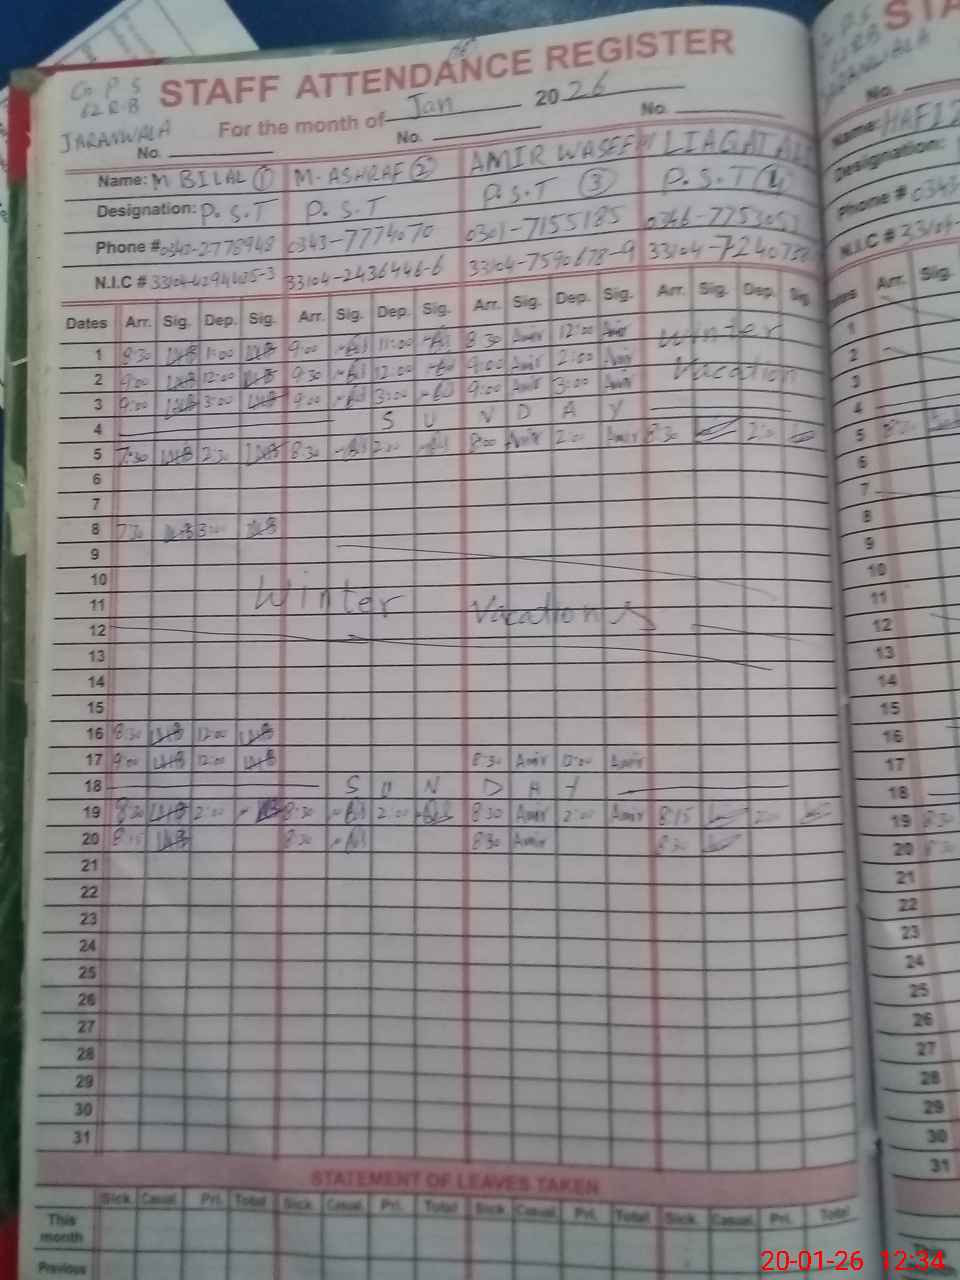 G P S
62 R.B
JARANWALA
STAFF ATTENDANCE REGISTER
For the month of Jan 2026
No. No. No.
Name: M BILAL ① M. ASHRAF ② AMIR WASEEM LIAQAT ALI
Designation: P.S.T P.S.T P.S.T ③ P.S.T ④
Phone # 0343-2778948 0343-7774070 0301-7155185
N.I.C # 33104-2436446-6 33104-7590678-9
Dates Arr. Sig. Dep. Sig. Arr. Sig. Dep. Sig. Arr. Sig. Dep. Sig. Arr. Sig. Dep. Sig.
1 8:30 11:00 9:00 11:00 8:30 Amir 12:00 Amir Winter
2 9:00 12:00 9:30 12:00 9:00 Amir 2:00 Amir Vacation
3 9:00 3:00 9:00 3:00 9:00 Amir 3:00 Amir
4 S U N D A Y
5 7:30 2:30 8:30 2:00 8:00 Amir 2:00 Amir 8:30 2:00
6
7
8 7:30 3:00
9
10
11 Winter Vacations
12
13
14
15
16 8:30 12:00
17 9:00 12:00 8:30 Amir 12:00 Amir
18 S U N D A Y
19 8:30 2:00 8:30 2:00 8:30 Amir 2:00 Amir 8:15 2:00
20 8:15 8:30 8:30 Amir 8:30
21
22
23
24
25
26
27
28
29
30
31
STATEMENT OF LEAVES TAKEN
Sick. Casual. Pri. Total Sick. Casual. Pri. Total Sick. Casual. Pri. Total Sick. Casual. Pri. Total
This month
Previous
STA
JARANWALA
No.
Name: HAFIZ
Designation:
Phone # 0343
N.I.C # 33104
Dates Arr. Sig.
1
2
3
4
5
6
7
8
9
10
11
12
13
14
15
16
17
18
19 8:30
20
21
22
23
24
25
26
27
28
29
30
31
20-01-26 12:34